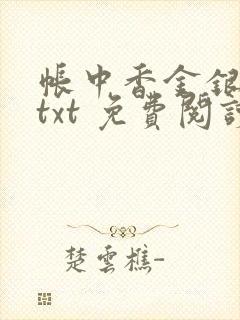 帳中香金銀
txt 免費閱讀
楚雲樵-